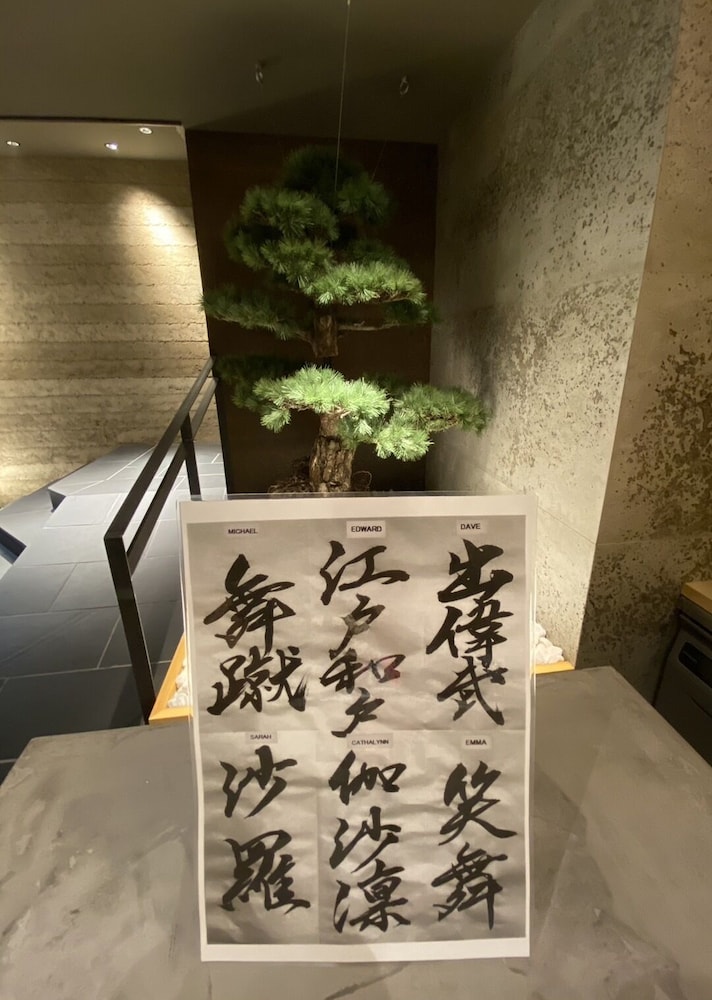 MICHAEL
舞蹴
EDWARD
江戸和戸
DAVE
出偉武
SARAH
沙羅
CATHALYNN
伽沙凛
EMMA
笑舞